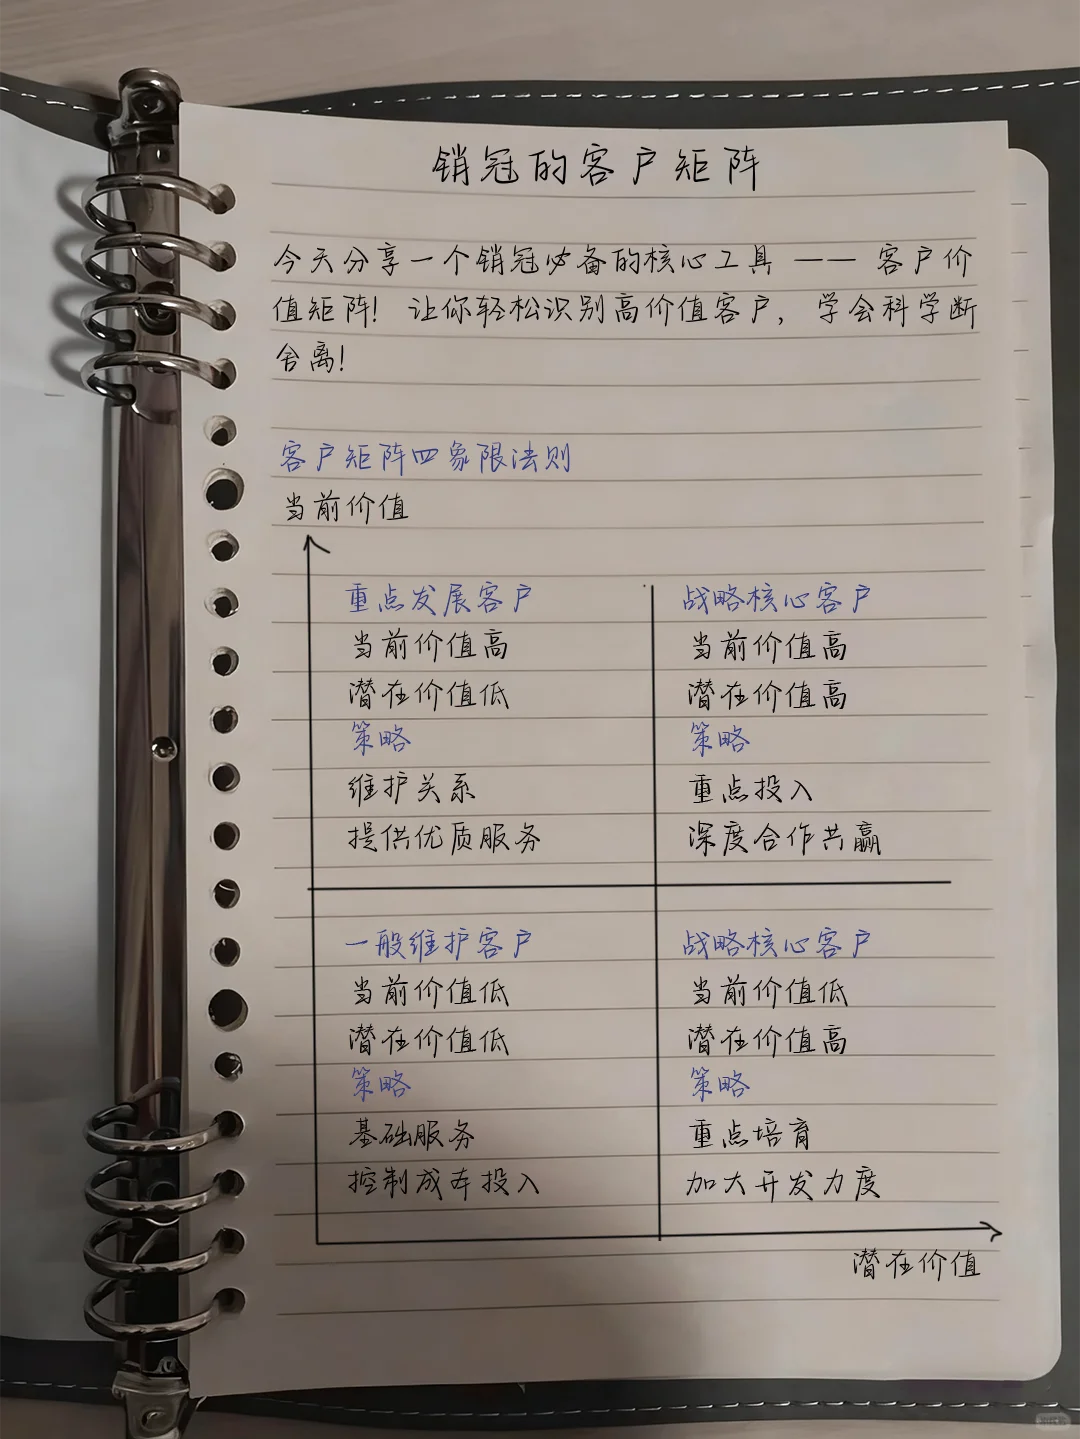 销冠的客户矩阵
今天分享一个销冠必备的核心工具 —— 客户价
值矩阵! 让你轻松识别高价值客户, 学会科学断
舍离!
客户矩阵四象限法则
当前价值
重点发展客户
当前价值高
潜在价值低
策略
维护关系
提供优质服务
战略核心客户
当前价值高
潜在价值高
策略
重点投入
深度合作共赢
一般维护客户
当前价值低
潜在价值低
策略
基础服务
控制成本投入
战略核心客户
当前价值低
潜在价值高
策略
重点培育
加大开发力度
潜在价值